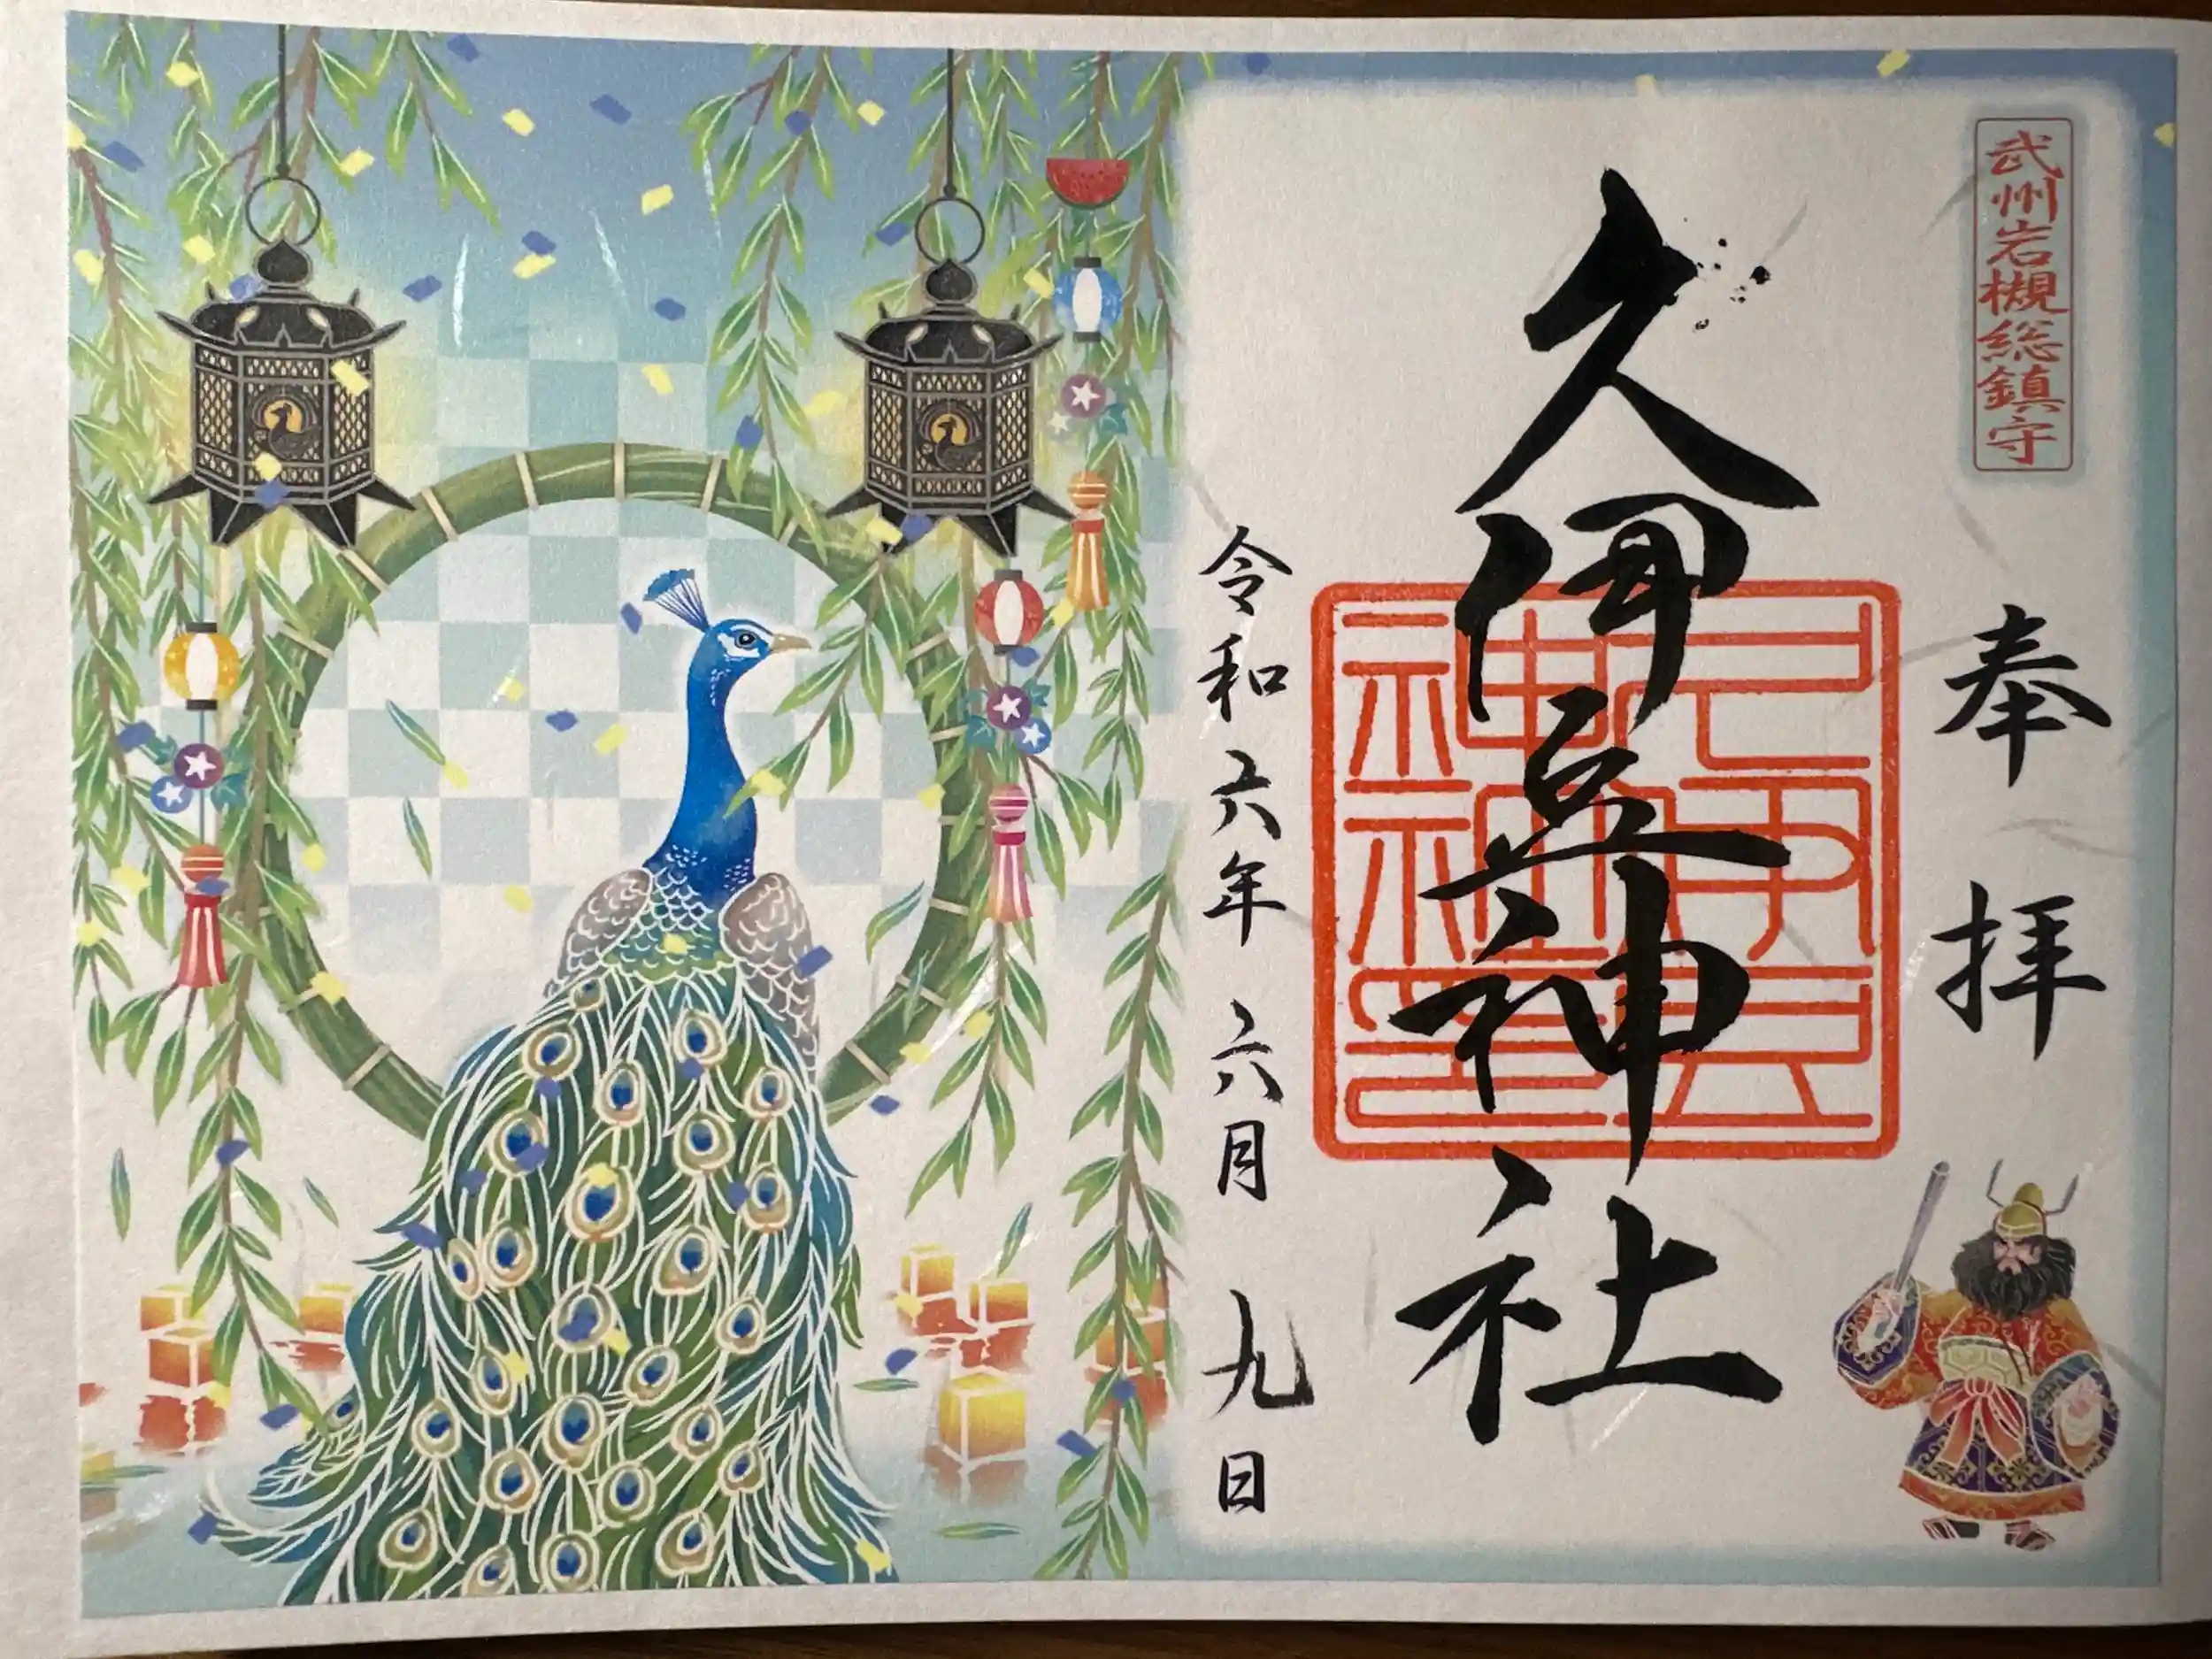 武州岩槻総鎮守
奉拝
久伊豆神社
久伊豆神社神印
令和六年 六月 九日